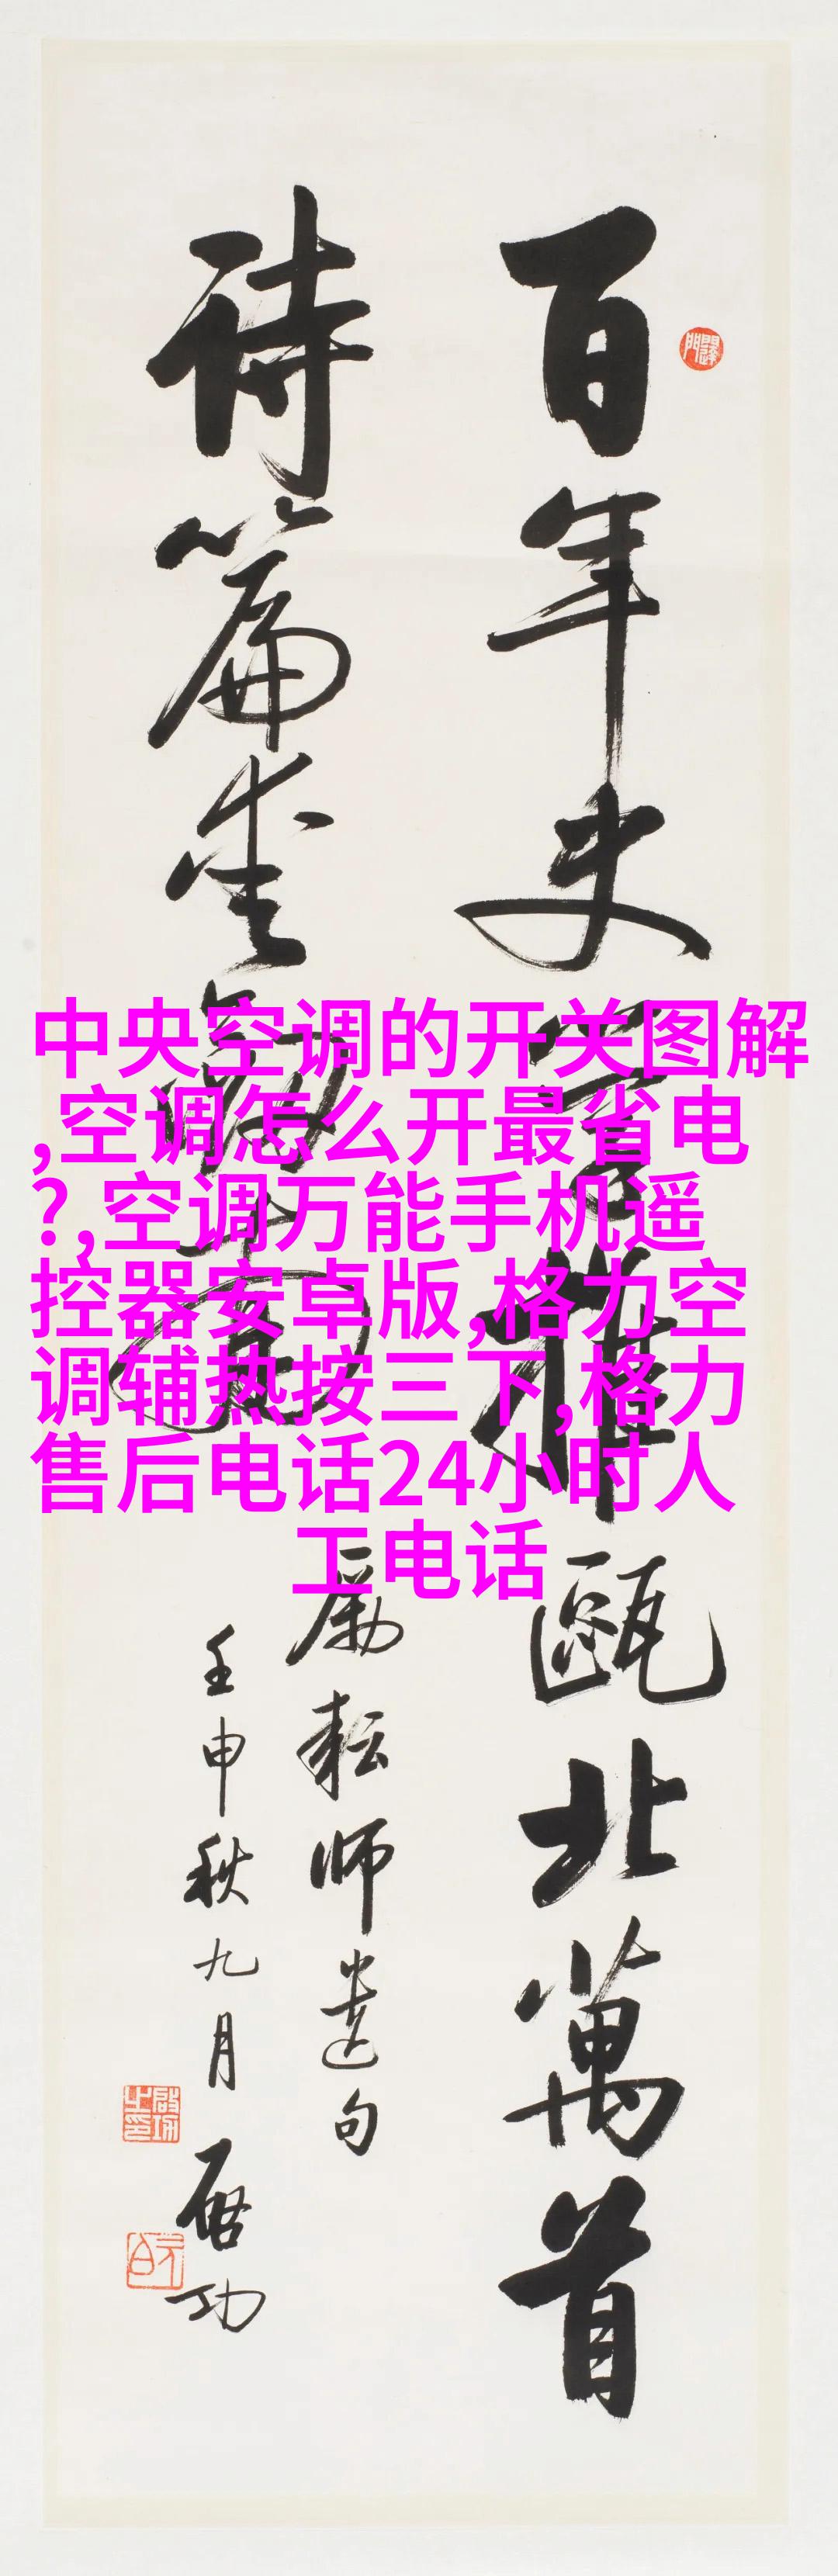 百年史學推甌北萬首
詩篇愛劍南
勵耘師遺句
壬申秋九月
啓功
啓功之印
元白
中央空调的开关图解
,空调怎么开最省电
?,空调万能手机遥
控器安卓版,格力空
调辅热按三下,格力
售后电话24小时人
工电话